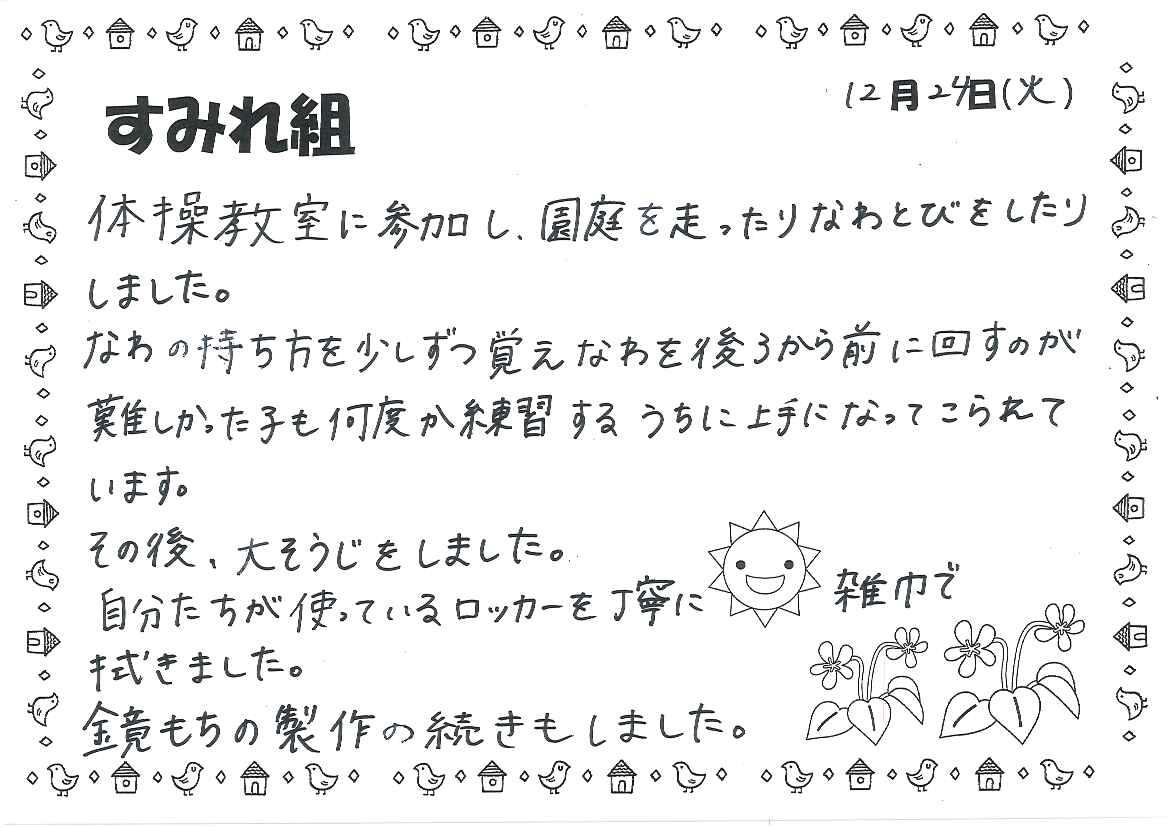 すみれ組
12月24日(火)
体操教室に参加し、園庭を走ったりなわとびをしたり
しました。
なわの持ち方を少しずつ覚えなわを後ろから前に回すのが
難しかった子も何度か練習するうちに上手になってこられて
います。
その後、大そうじをしました。
自分たちが使っているロッカーを丁寧に雑巾で
拭きました。
鏡もちの製作の続きもしました。